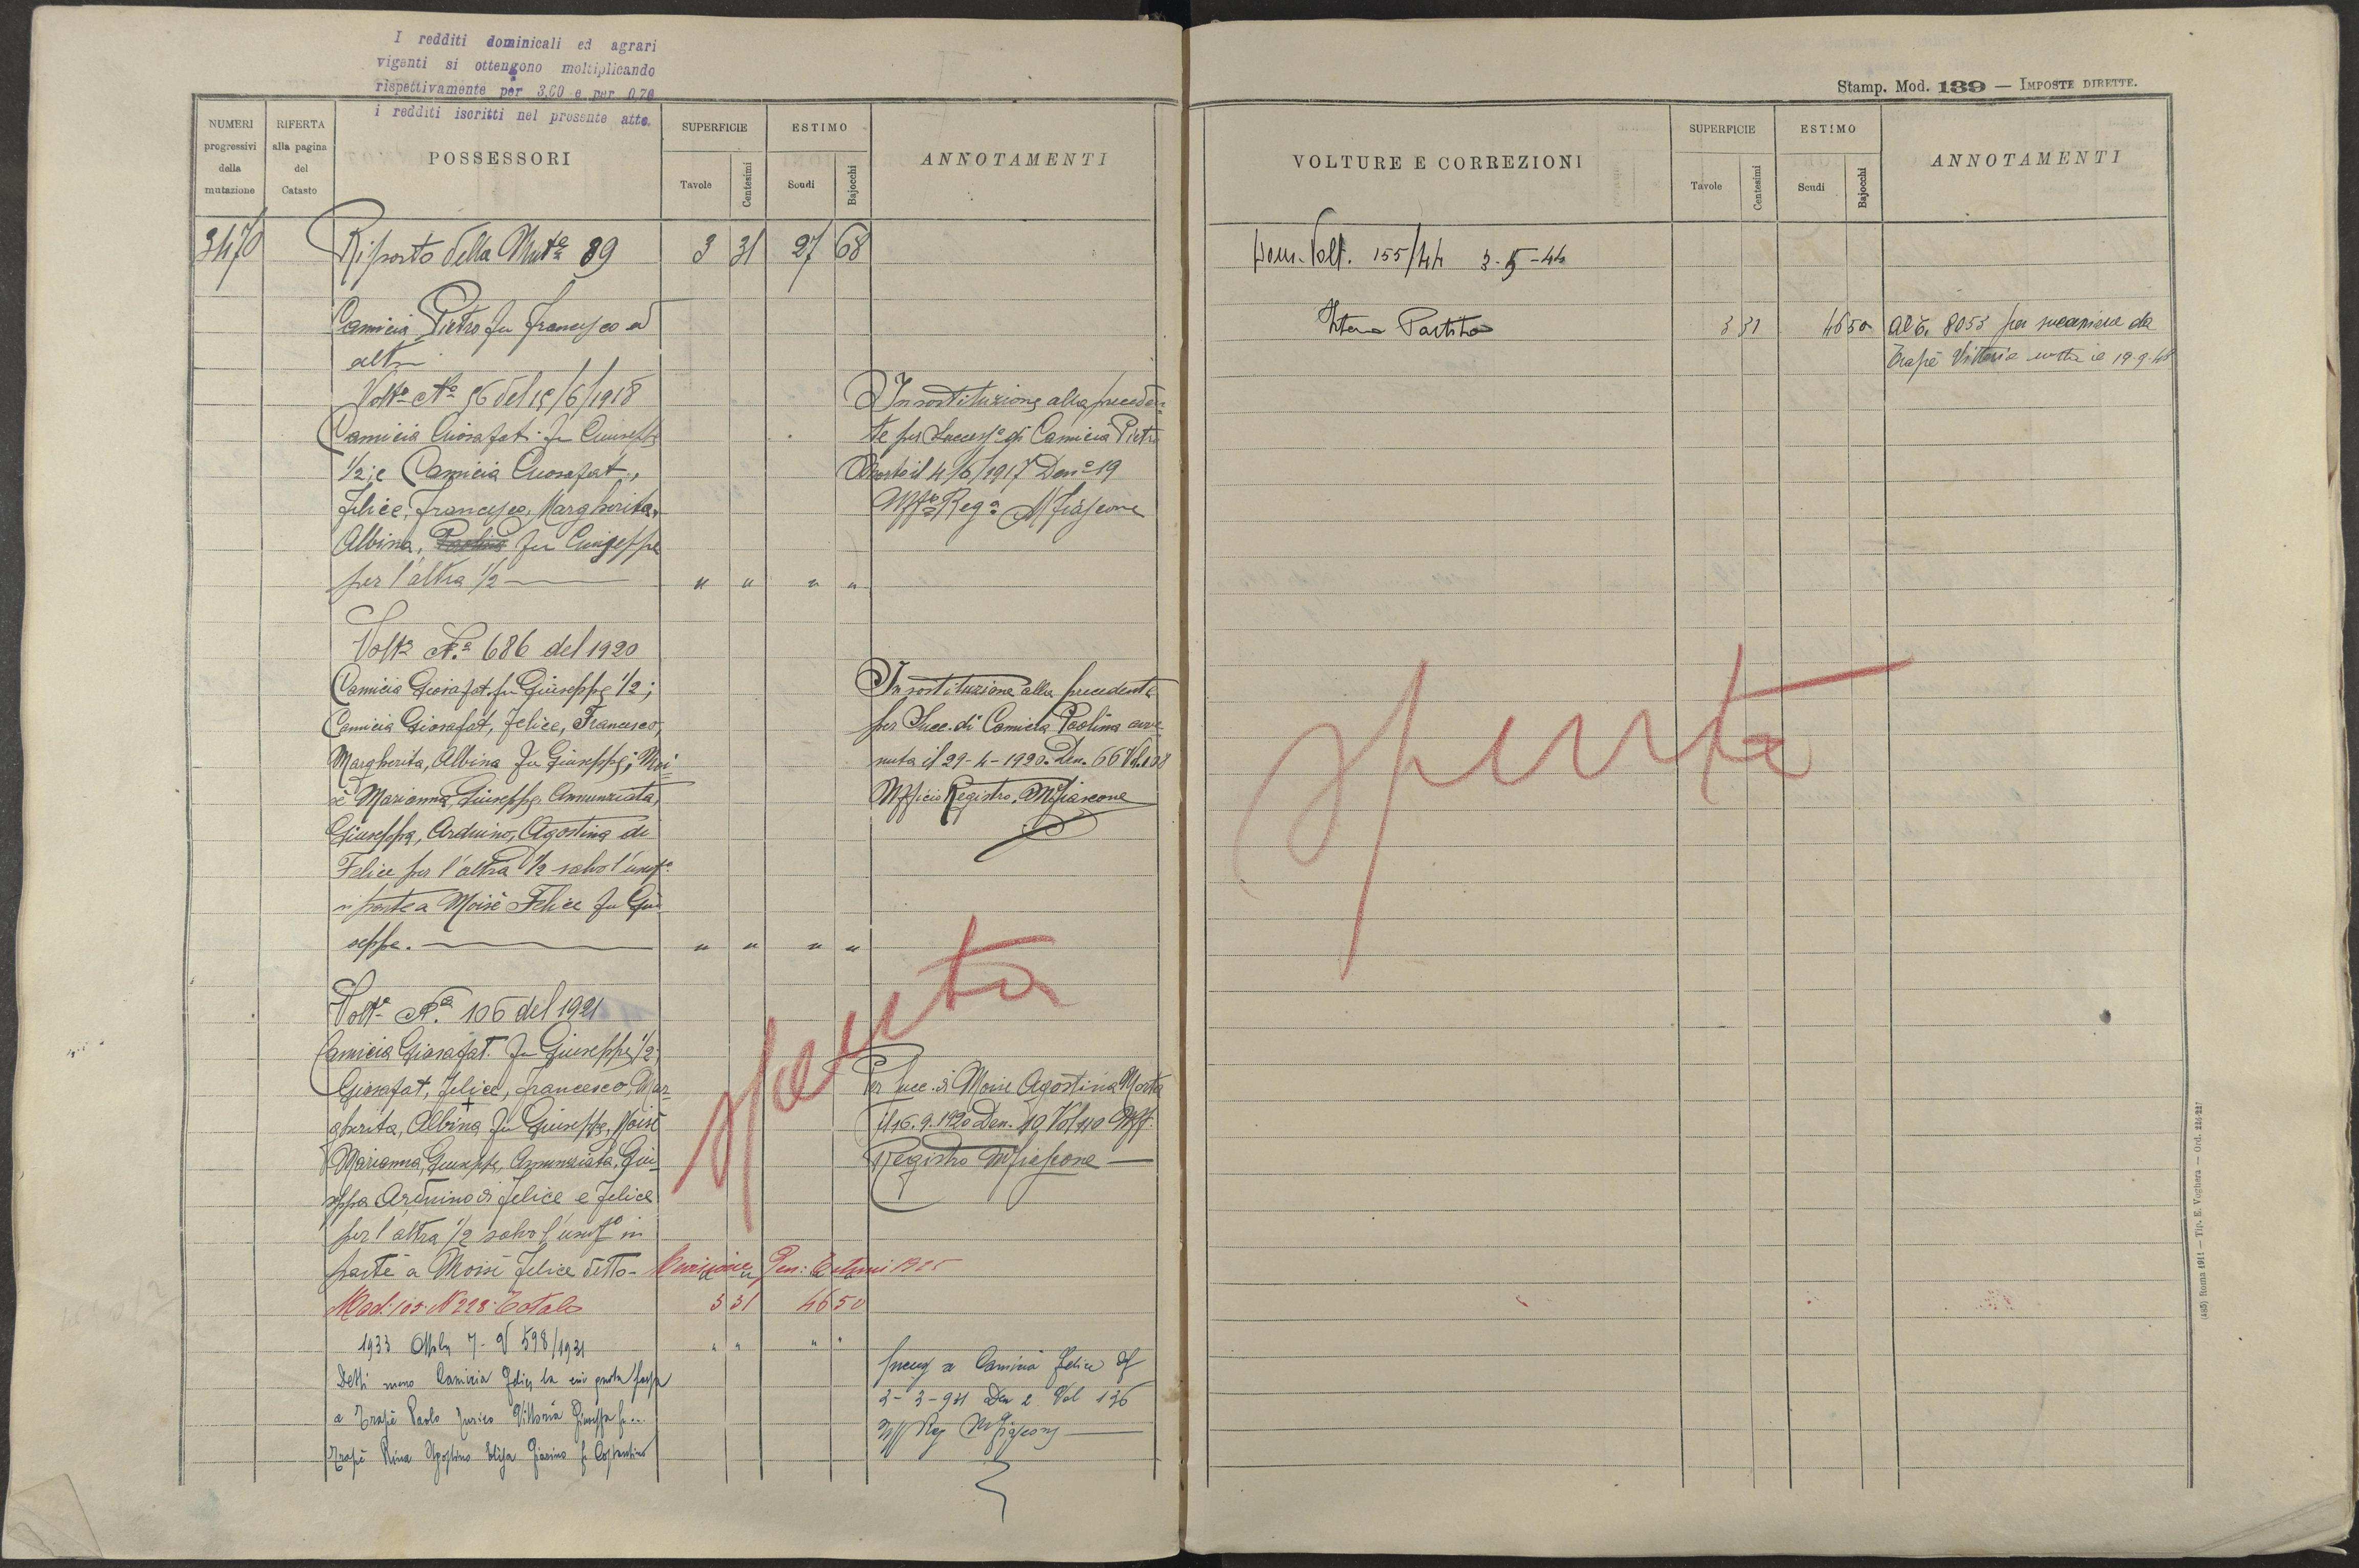 I redditi dominicali ed agrari
vigenti si ottengono moltiplicando
rispettivamente per 3,60 e per 0,70
i redditi iscritti nel presente atto.
NUMERI progressivi della mutazione
RIFERTA alla pagina del Catasto
POSSESSORI
SUPERFICIE
Tavole
Centesimi
ESTIMO
Scudi
Bajocchi
ANNOTAMENTI
3470 Riporto della Mut.ª 89 3 31 27 68
Camicia Pietro fu Francesco ed
altri
Volt.ª N.º 56 del 15/6/1918
Camicia Giosafat fu Giuseppe
1/2; e Camicia Giosafat,
Felice, Francesco, Margherita,
Albina, fu Giuseppe
per l'altra 1/2 " " " "
In sostituzione alla preceden-
te per Success.e di Camicia Pietro
Morto il 4/6/1917 Den.ª 19
Uff.º Reg.º Mfiascone
Volt.ª N.º 686 del 1920
Camicia Giosafat fu Giuseppe 1/2;
Camicia Giosafat, Felice, Francesco,
Margherita, Albina fu Giuseppe; Moi-
sè Marianna, Giuseppe, Annunziata,
Giuseppa, Arduino, Agostina di
Felice per l'altra 1/2 salvo l'usuf.º
in parte a Moisè Felice fu Giu-
seppe. " " " "
In sostituzione alla precedente
per Succ. di Camicia Paolina avve-
nuta il 29-4-1920. Den. 66 Vol. 108
Ufficio Registro. Mfiascone
Volt.ª N.º 106 del 1921
Camicia Giosafat fu Giuseppe 1/2;
Giosafat, Felice, Francesco, Mar-
gherita, Albina fu Giuseppe, Moisè
Marianna, Giuseppe, Annunziata, Giu-
seppa Arduino di Felice e Felice
per l'altra 1/2 salvo l'usuf.º in
parte a Moisè Felice detto " " " "
Per Succ. di Moisè Agostina Morta
il 16.9.1920 Den. 19 Vol 110 Uff.
Registro Mfiascone
spenta
Revisione Gen: Estimi 1925
Mod: 105 N 228 Totale 3 31 46 50
1933 7 - V 598/1931 " " " "
Detti meno Camicia Felice la cui parte passa
a Trapè Paolo Enrico Vittoria Giuseppa fu ...
Trapè Rina Agostino Elisa Giacomo fu Costantino
Camicia Felice
3-3-931 Den 2 Vol 136
Uff Reg Mfiascone
Stamp. Mod. 139 — IMPOSTE DIRETTE.
VOLTURE E CORREZIONI
SUPERFICIE
Tavole
Centesimi
ESTIMO
Scudi
Bajocchi
ANNOTAMENTI
Dom. Volt. 155/44 3-5-44
Intera Partita 3 31 46 50 Al C. 8053 per successione da
Trapè Vittoria morta il 19-9-43
spenta
(485) Roma 1911 — Tip. E. Voghera — Ord. 214-217